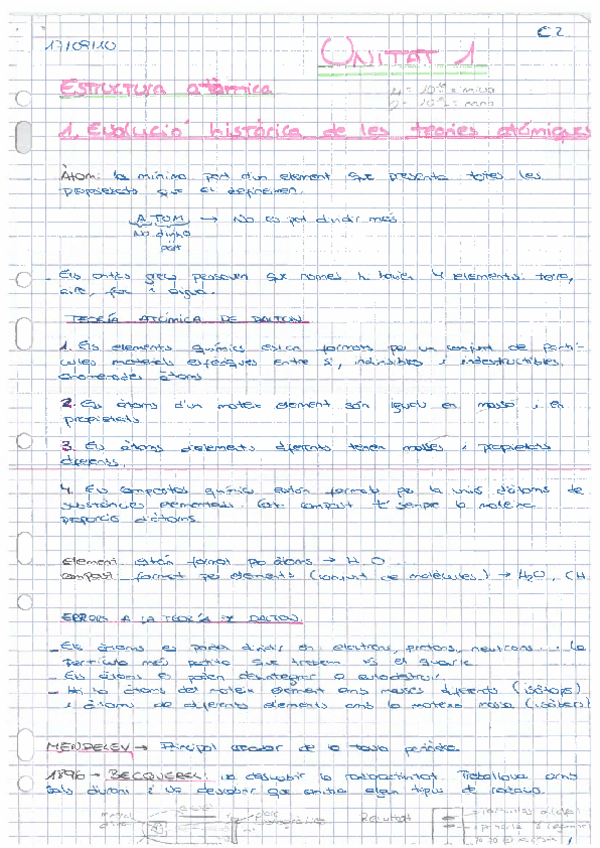 C2
17/09/10
UNITAT 1
Estructura atòmica
1. Evolució històrica de les teories atòmiques
Àtom: la mínima part d'un element que presenta totes les
propietats que el defineixen.
A TOM → No es pot dividir més.
No divisió
part
- Els antics grecs pensaven que només hi havien 4 elements: terra,
aire, foc i aigua.
TEORÍA ATÒMICA DE DALTON
1. Els elements químics estan formats per un conjunt de partí-
cules materials esfèriques entre si, indivisibles i indestructibles
anomenades àtoms
2. Els àtoms d'un mateix element són iguals en massa i en
propietats
3. Els àtoms d'elements diferents tenen masses i propietats
diferents.
4. Els compostos químics estan formats per la unió d'àtoms de
substàncies elementals. Cada compost té sempre la mateixa
proporció d'àtoms.
Element: estan format per àtoms → H, O
Compost: format per elements (conjunt de molècules) → H₂O, CH
ERRORS A LA TEORÍA DALTON
- Els àtoms es poden dividir en: electrons, protons, neutrons... La
partícula més petita que trobem és el quark.
- Els àtoms es poden desintegrar o autodestruir.
- Hi ha àtoms del mateix element amb masses diferents (isòtops)
i àtoms de diferents elements amb la mateixa massa (isòbars)
MENDELEV → Principal creador de la taula periòdica
1896 - BECQUEREL: va descubrir la radioactivitat. Treballava amb
sals d'urani i va descobrir que emitia algun tipus de
Resultat